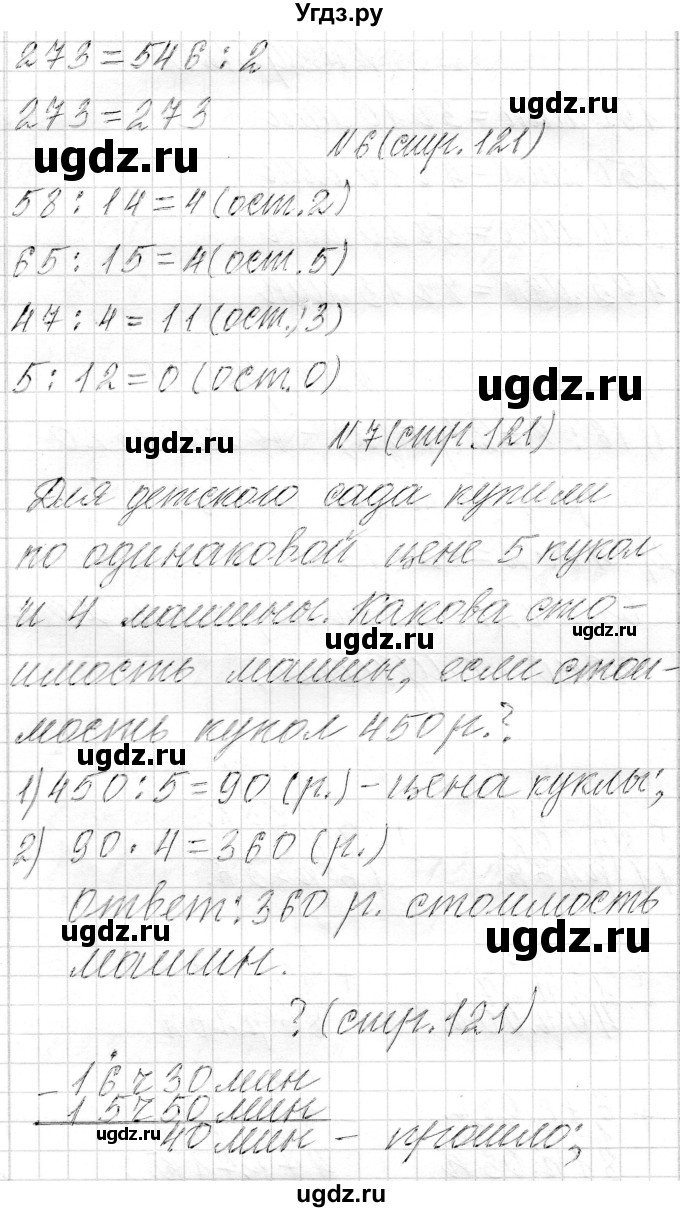 Угдз.ру
273=546:2
273=273
ugdz.ru
ugdz.ru
№6(стр.121)
58:14=4(ост.2)
65:15=4(ост.5)
47:4=11(ост.3)
5:12=0(ост.0)
ugdz.ru
ugdz.ru
№7(стр.121)
Для детского сада купили
по одинаковой цене 5 кукол
и 4 машины. Какова сто-
ugdz.ru
ugdz.ru
имость машин, если стои-
мость кукол 450 р.?
ugdz.ru
1) 450:5=90 (р.) - цена куклы;
2) 90·4=360 (р.)
Ответ: 360 р. стоимость
ugdz.ru
ugdz.ru
машин.
? (стр.121)
- 16ч30мин
15ч50мин
ugdz.ru
40мин - прошло;
ugdz.ru